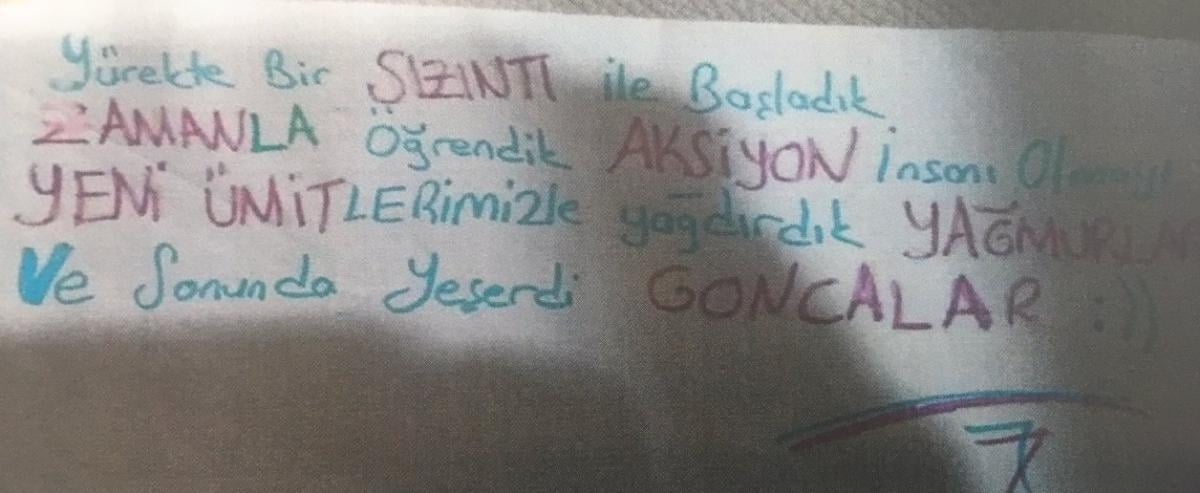 Yürekte Bir SIZINTI ile Başladık
ZAMANLA Öğrendik AKSİYON İnsanı Olmayı
YENİ ÜMİTLERimizle yağdırdık YAĞMURLAR
Ve Sonunda Yeşerdi GONCALAR :))
7